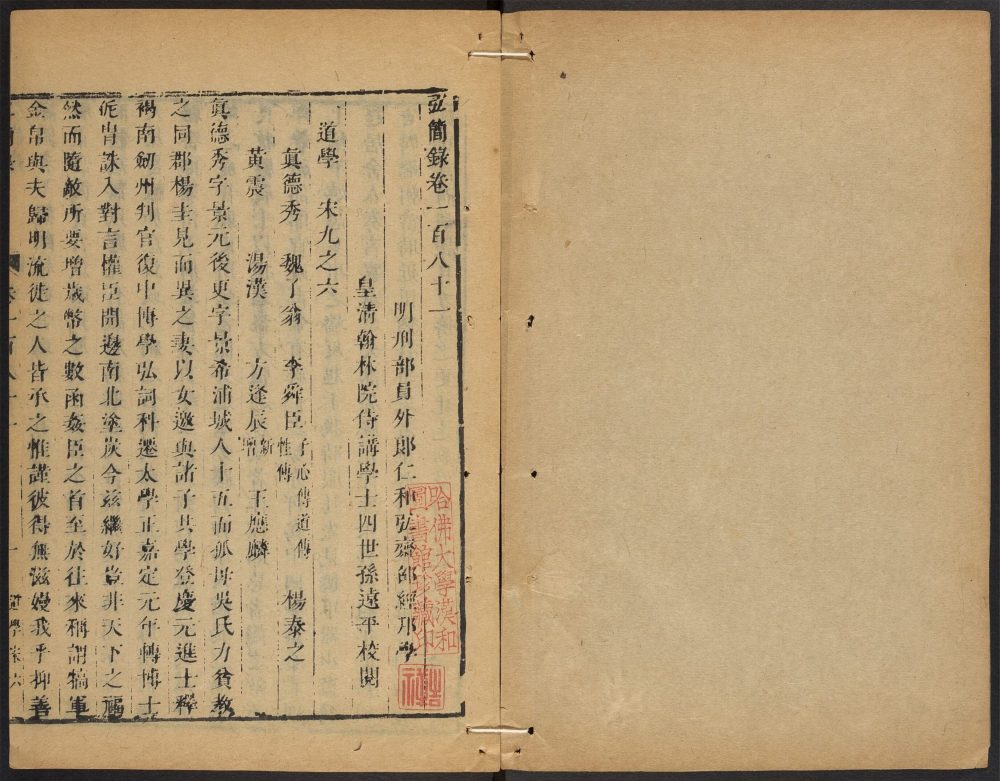 弘簡錄卷一百八十一
明刑部員外郎仁和弘齋邵經邦學
皇清翰林院侍講學士四世孫遠平校閱
道學 宋九之六
眞德秀 魏了翁 李舜臣 子心傳道傳性傳 楊泰之
黃震 湯漢 方逢辰 新增 王應麟
眞德秀字景元後更字景希浦城人十五而孤母吳氏力貧教
之同郡楊圭見而異之妻以女邀與諸子共學登慶元進士釋
褐南劒州判官復中博學弘詞科遷太學正嘉定元年轉博士
泥胄誅入對言權臣開邊南北塗炭今兹繼好豈非天下之福
然而隨敵所要增歲幣之數函姦臣之首至於往來稱謂犒軍
金帛與夫歸明流徙之人皆承之惟謹彼得無滋嫚我乎抑善
卷一百八十一 一 道學宋六
哈佛大學漢和
圖書館珍藏印